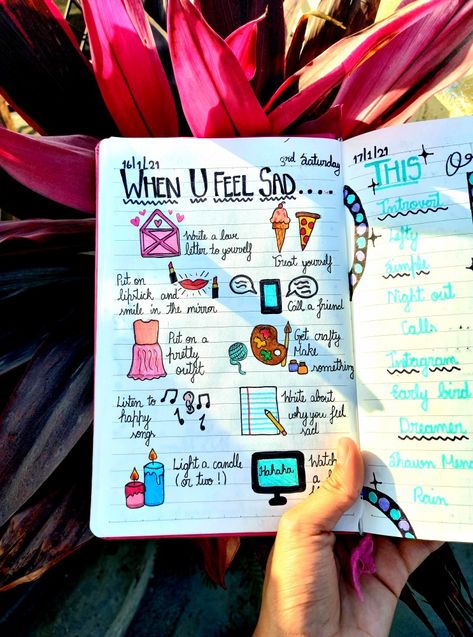 16/1/21
3rd Saturday
WHEN U FEEL SAD.....
Write a love
letter to yourself
Treat yourself
Put on
lipstick and
smile in the mirror
Call a friend
Put on a
pretty
outfit
Get crafty
Make
something
Listen to
happy
songs
Write about
why you feel
sad
Light a candle
(or two!)
Hahaha.
Watch
a
17/1/21
THIS
Introvert
Lefty
Simple
Night out
Calls
Instagram
Early bird
Dreamer
Shawn
Rain